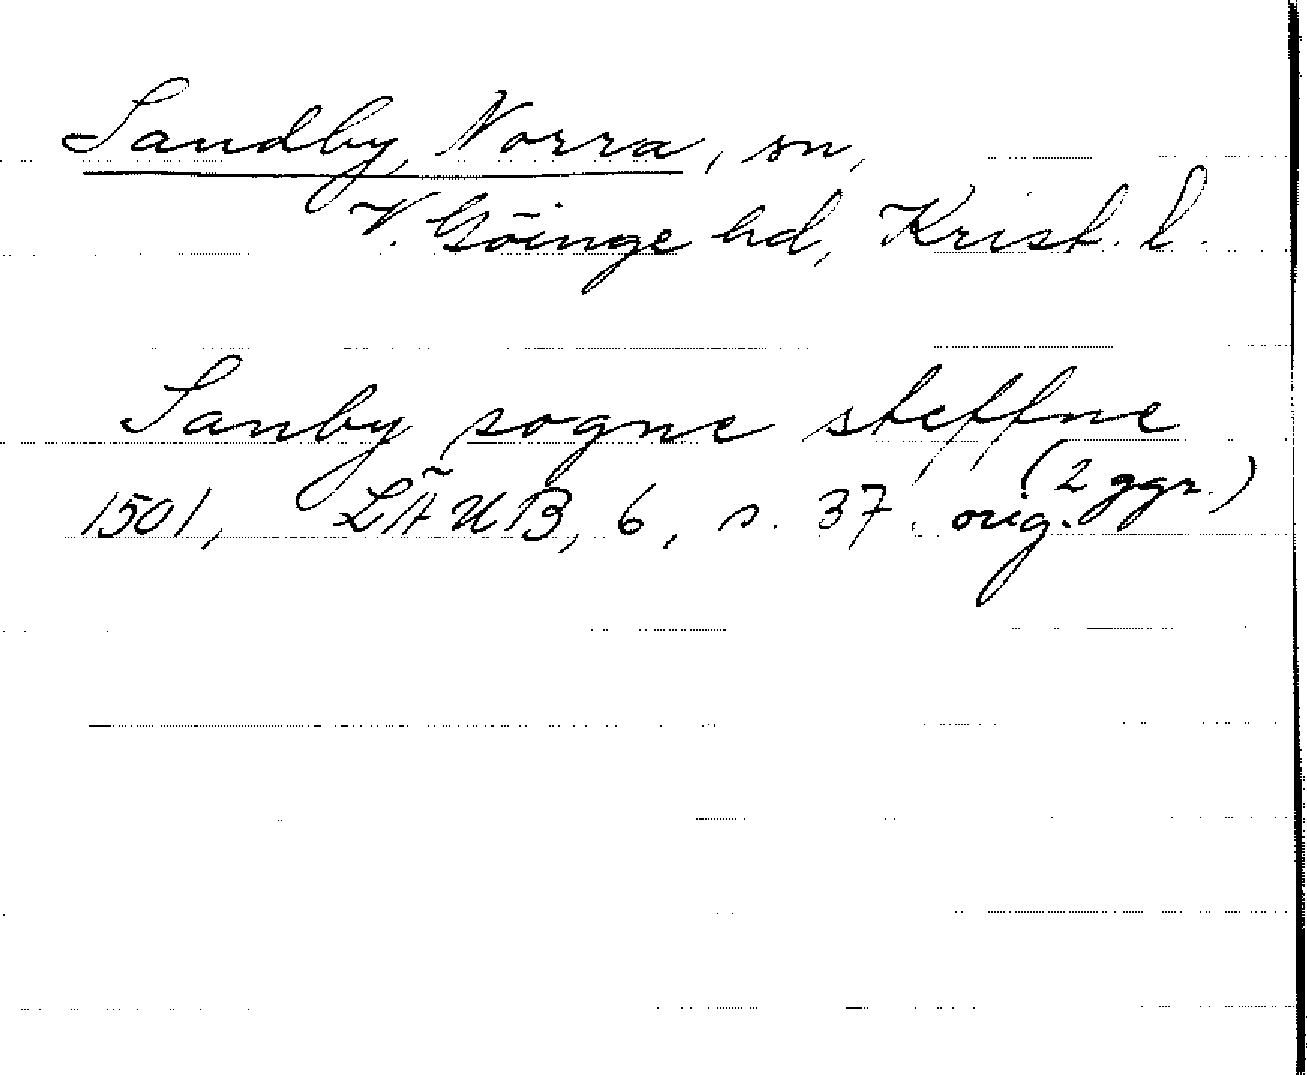 Sandby, Norra, sn,
V. Göinge hd, Krist. l.
Sanby sogne steffne
(2 ggr.)
1501, LÄUB, 6, s. 37. orig.